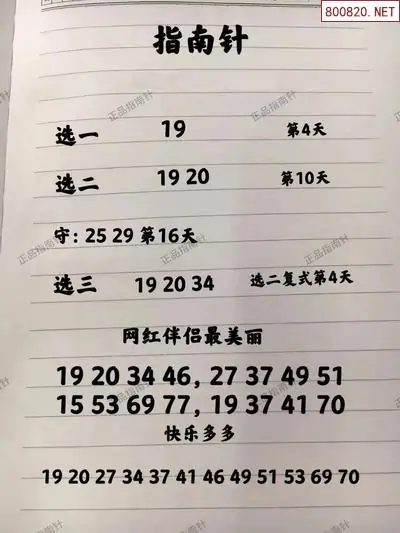 800820.NET
指南针
选一 19 第4天
选二 19 20 第10天
守：25 29 第16天
选三 19 20 34 选二复式第4天
网红伴侣最美丽
19 20 34 46，27 37 49 51
15 53 69 77，19 37 41 70
快乐多多
19 20 27 34 37 41 46 49 51 53 69 70
正品指南针
正品指南针
正品指南针
正品指南针
正品指南针
正品指南针
正品指南针
正品指南针